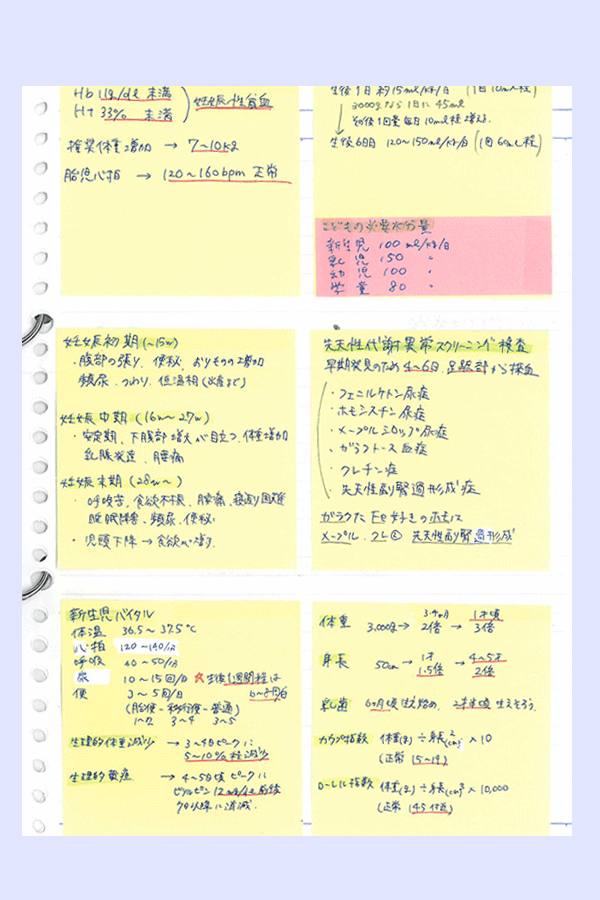 Hb 11g/dl 未満
Ht 33% 未満
妊娠性貧血
推奨体重増加 → 7〜10kg
胎児心拍 → 120〜160bpm 正常
生後1日 約15ml/kg/日 (1回10ml程)
3000gなら1日に45ml
その後1回量 毎日10ml程増える.
生後6日目 120〜150ml/kg/日 (1回60ml程)
こどもの必要水分量
新生児 100 ml/kg/日
乳児 150 〃
幼児 100 〃
学童 80 〃
妊娠初期 (〜15w)
・腹部の張り、便秘、おりものの増加
頻尿、つわり、低温相
妊娠中期 (16w〜27w)
・安定期、下腹部増大が目立つ、体重増加
乳腺発達、腰痛
妊娠末期 (28w〜)
・呼吸苦、食欲不振、腰痛、寝返り困難
睡眠障害、頻尿、便秘
・児頭下降→食欲
先天性代謝異常スクリーニング検査
早期発見のため 4〜6日、足踵部から採血
・フェニルケトン尿症
・ホモシスチン尿症
・メープルシロップ尿症
・ガラクトース血症
・クレチン症
・先天性副腎過形成症
ガラクた Fe 好きの ホモに
メープル、クレ 先天性副腎過形成
新生児バイタル
体温 36.5〜37.5℃
心拍 120〜140/分
呼吸 40〜50/分
尿 10〜15回/日 ☆生後1週間程は
便 3〜5回/日 6〜8回/日
(胎便-移行便-普通)
1〜2 3〜4 3〜5
生理的体重減少 → 3〜4日ピークに
5〜10%程減少
生理的黄疸 → 4〜5日頃ピークに
ビリルビン 12mg/dl 前後
7日以降に消滅.
体重 3.000g → 3.4ヶ月 2倍 → 1才頃 3倍
身長 50cm → 1才 1.5倍 → 4〜5才 2倍
乳歯 6ヶ月頃生え始め、2才半頃生えそろう.
カウプ指数 体重(g)÷身長²(cm)×10
(正常 15〜19)
ローレル指数 体重(g)÷身長³(cm)×10,000
(正常 145付近)